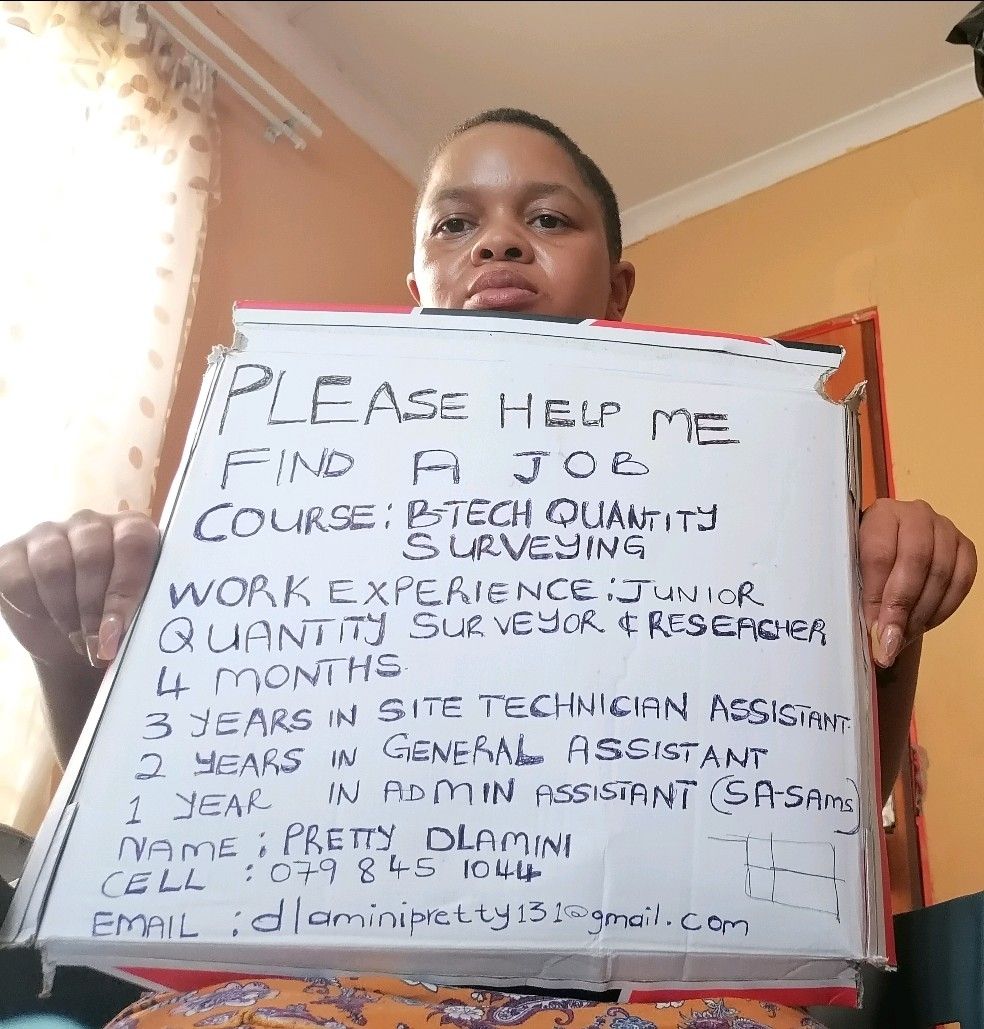 PLEASE HELP ME
FIND A JOB
COURSE: B-TECH QUANTITY
SURVEYING
WORK EXPERIENCE: JUNIOR
QUANTITY SURVEYOR & RESEACHER
4 MONTHS.
3 YEARS IN SITE TECHNICIAN ASSISTANT
2 YEARS IN GENERAL ASSISTANT
1 YEAR IN ADMIN ASSISTANT (SA-SAMS)
NAME: PRETTY DLAMINI
CELL : 079 845 1044
EMAIL : dlaminipretty131@gmail.com